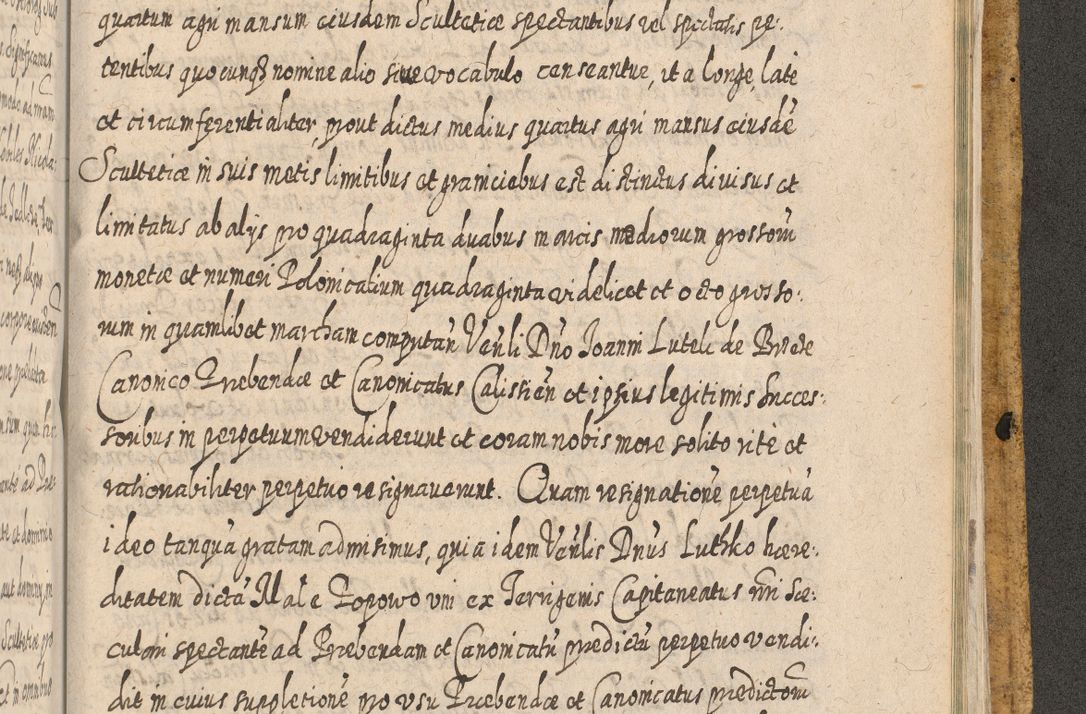 quartum agri mansum eiusdem Scultetiæ spectantibus vel spectatis pe-
tentibus quocunq3 nomine alio siue vocabulo censeantur, ita longe, late
et circumferentialiter, prout dictus medius quartus agri mansus eiusdē
Scultetiæ in suis metis, limitibus et graniciebus est distinctus divisus et
limitatus ab alijs pro quadraginta duabus marcis mediorum grossorū
monetæ et numeri Polonicalium quadraginta videlicet et octo grosso-
rum in quamlibet marcham computań Veñli Dño Joanni Lutek de Breze
Canonico Præbendæ et Canonicatus Calissień et ipsius legitimis Succes-
soribus in perpetuum vendiderunt et coram nobis more solito ritè et
rationabiliter perpetuo resignaverunt. Quam resignationē perpetuā
ideo tanquā gratam admisimus, quia idem Veñlis Dnūs Luthko hære-
ditatem dictā Male Popowo uni ex Terrigenis Capitaneatus nr̄i Sæ-
cularī spectantē ad Præbendam et Canonicatū predictū perpetuo vendi-
dit in cuius suppletionē pro usu Præbendæ et Canonicatus predictorū